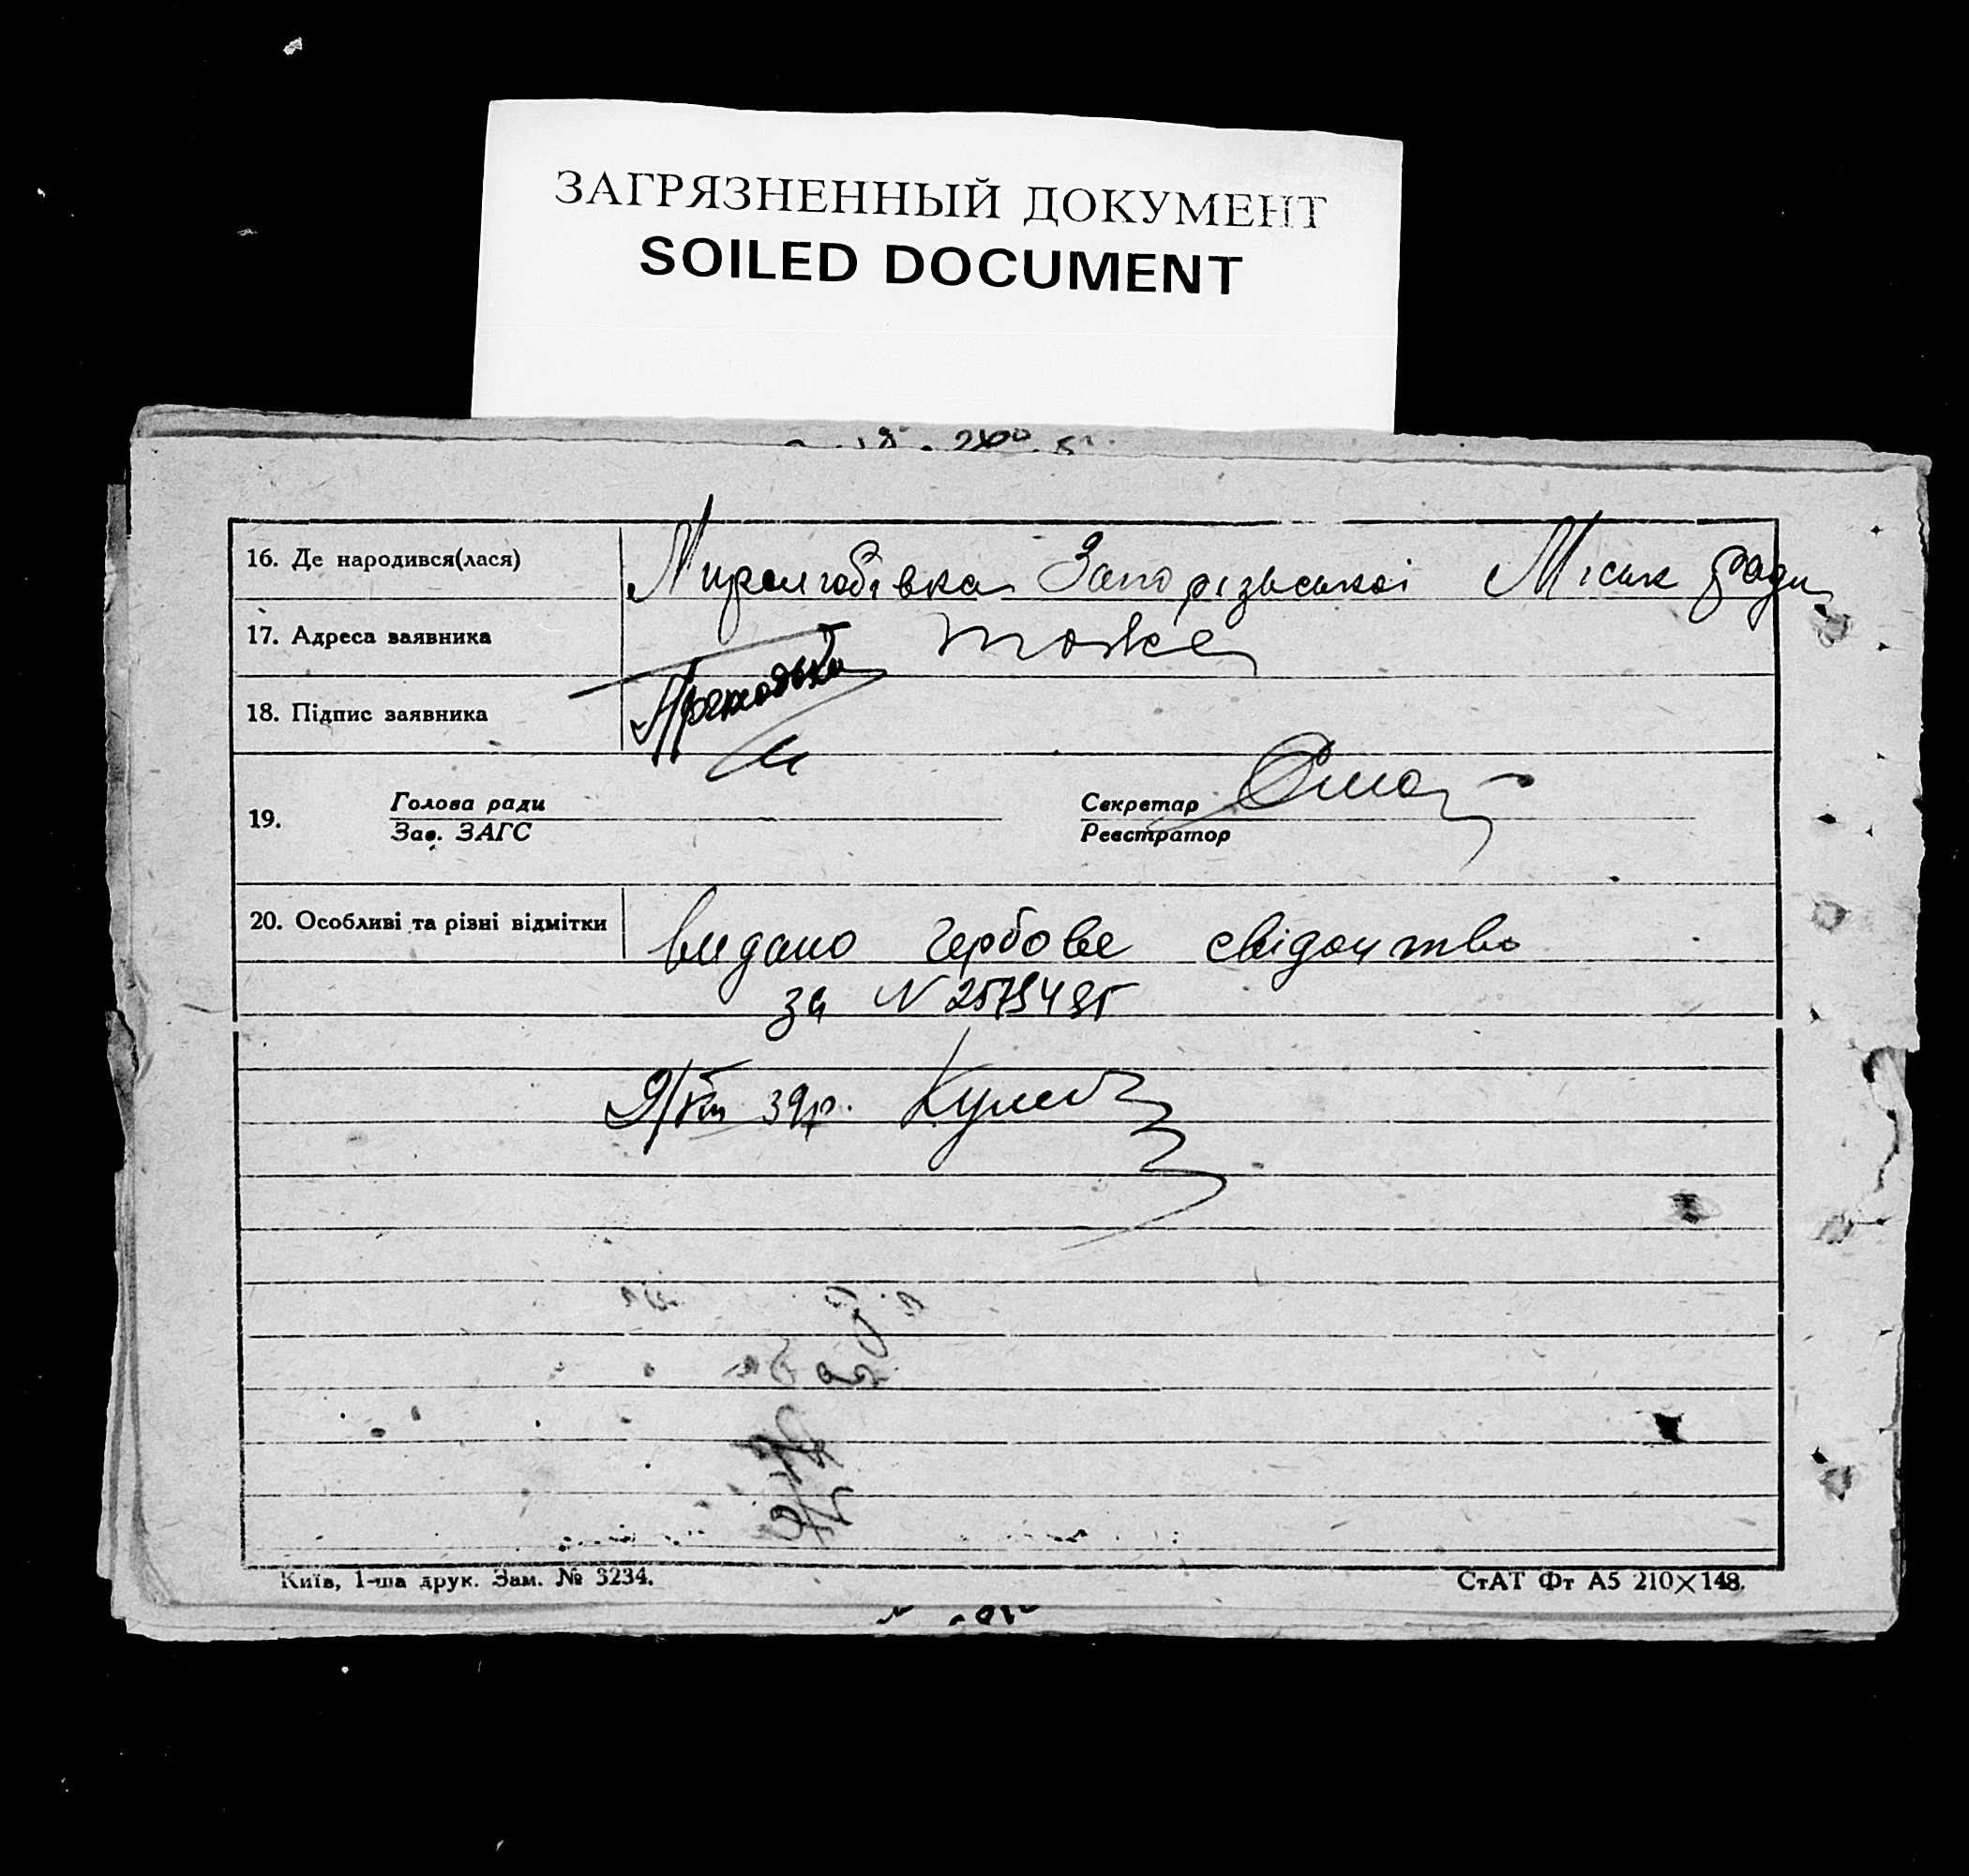 ЗАГРЯЗНЕННЫЙ ДОКУМЕНТ
SOILED DOCUMENT
16. Де народився(лася) Запорізської Міськ ради
17. Адреса заявника тоже
18. Підпис заявника
19. Голова ради Секретар
Зав. ЗАГС Реєстратор
20. Особливі та різні відмітки видано гербове свідоцтво
за N
9/VIII 39р.
Київ, 1-ша друк. Зам. № 3234.
СтАТ Фт А5 210×148.